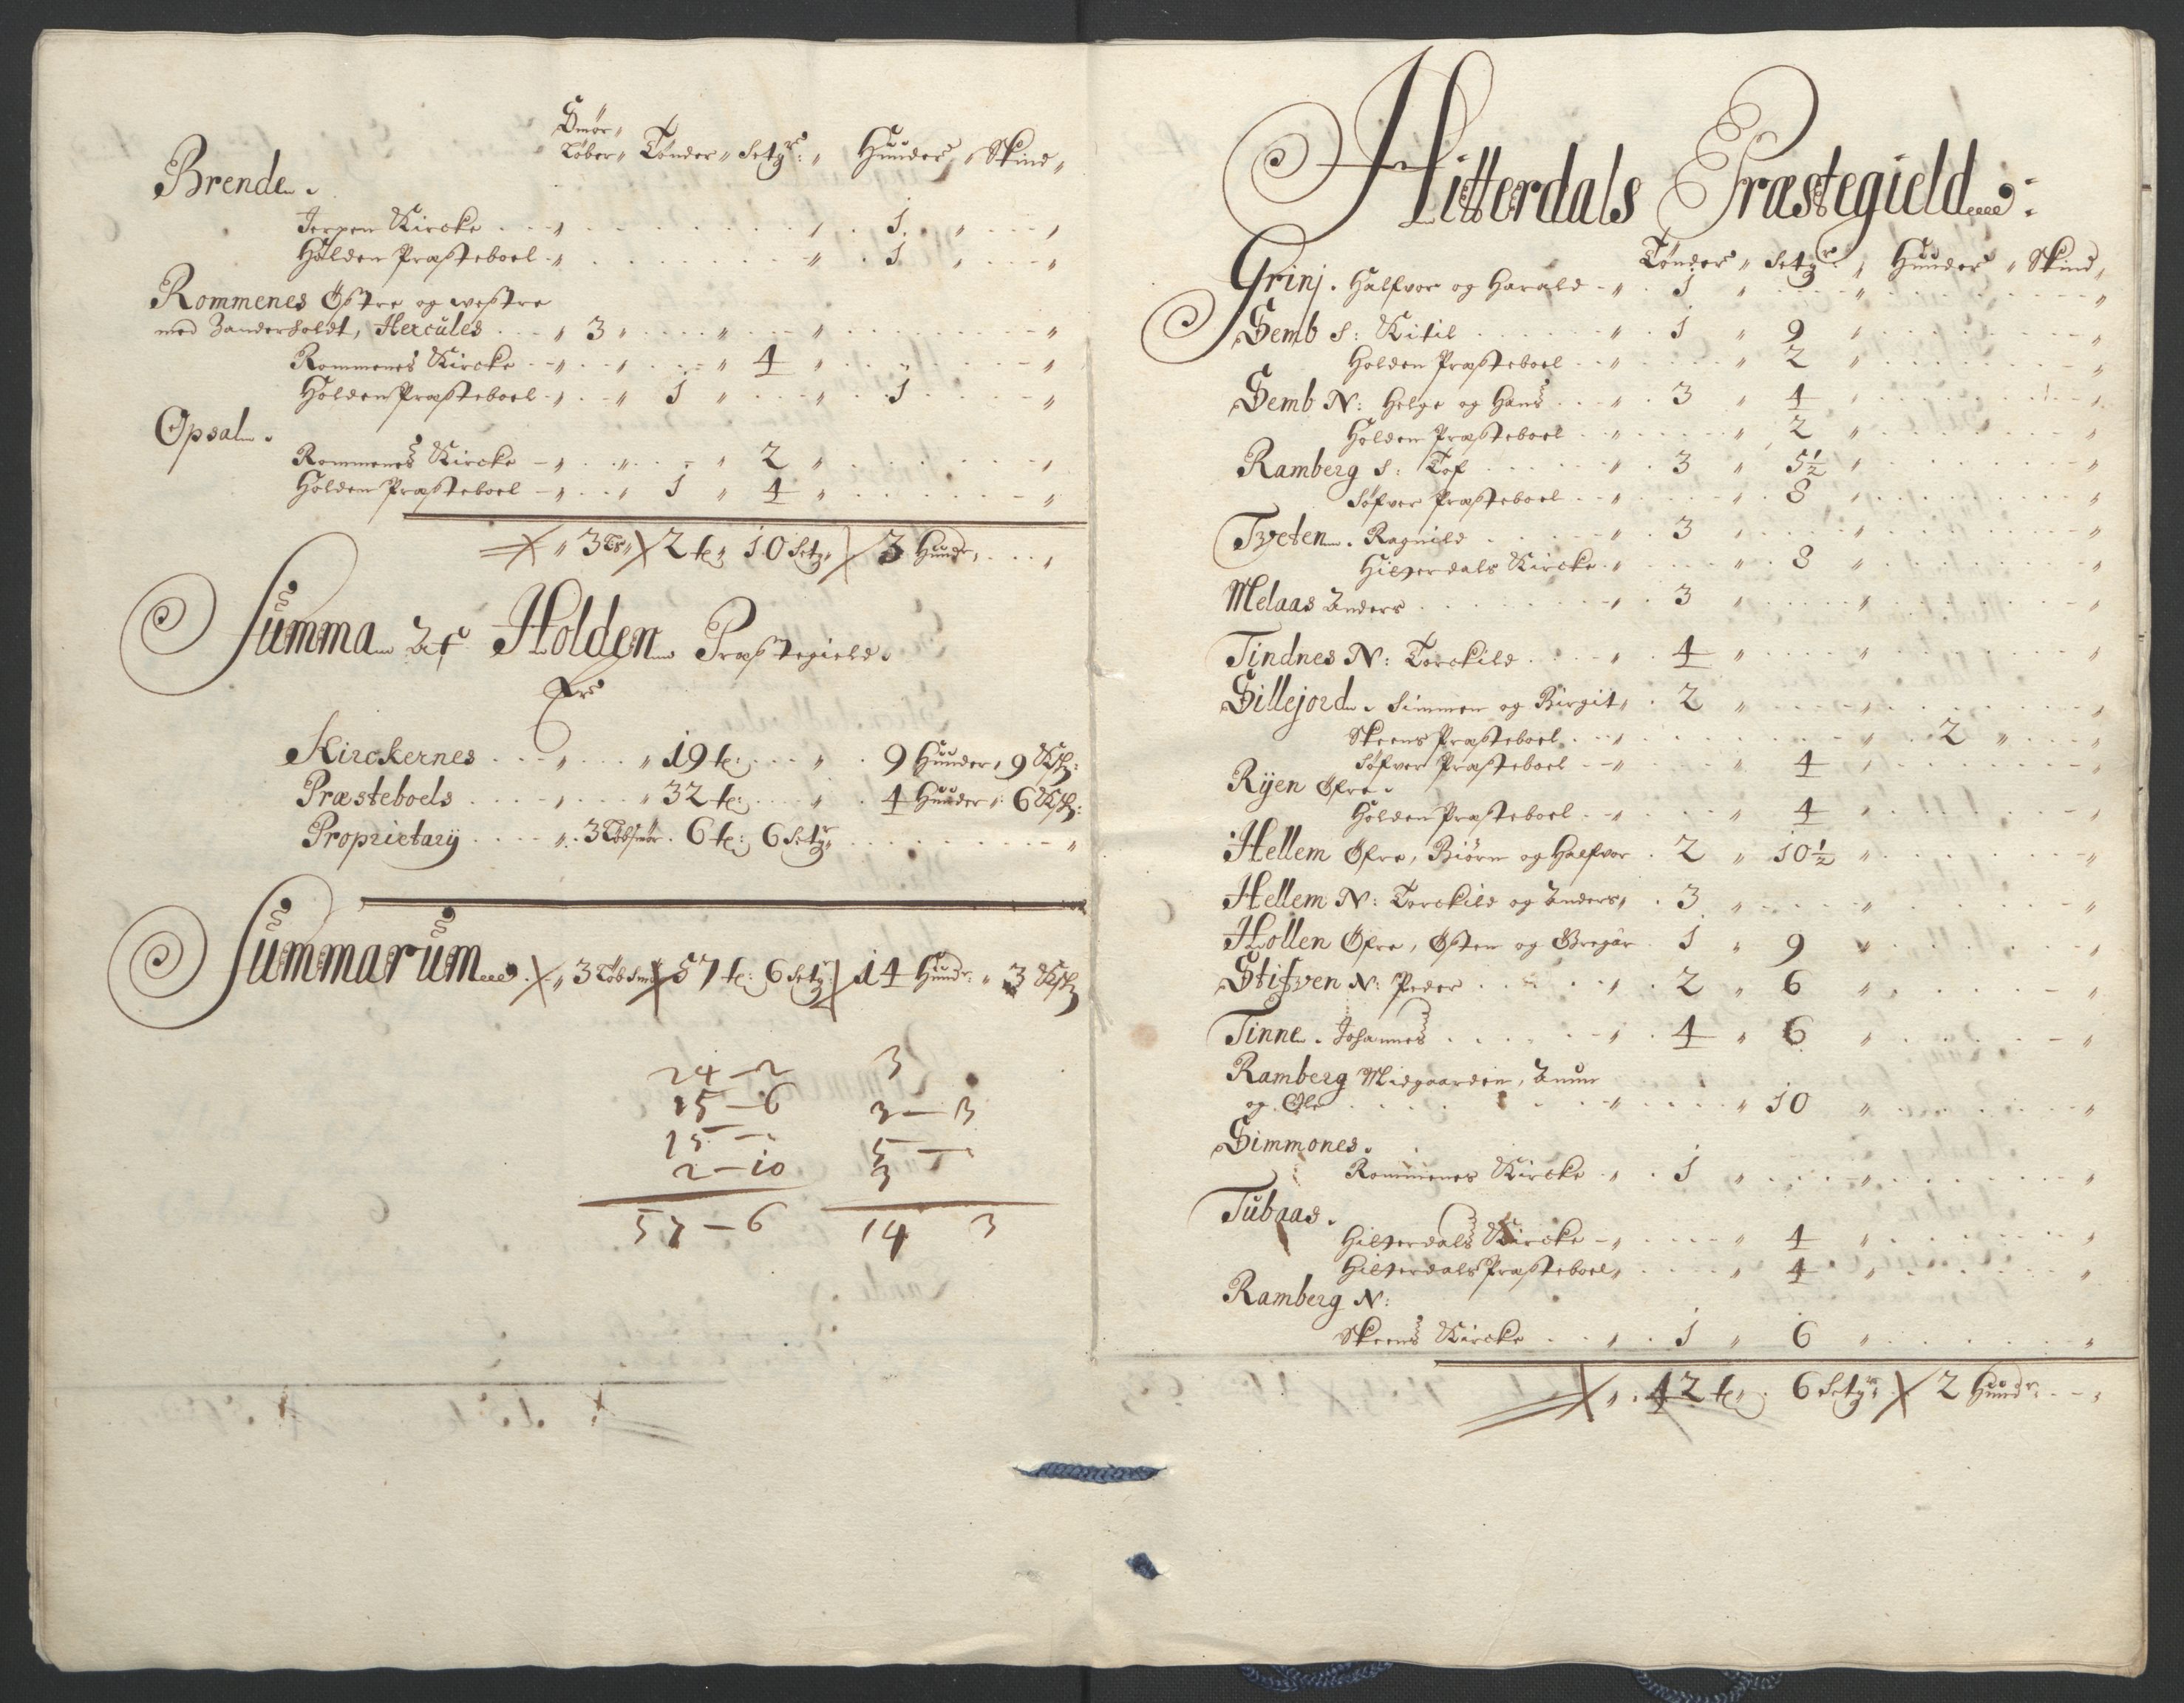 Smör„
Töber„ Tönder„ Setgr: „ Hunder „ Skind„
Brende.
Jerpen Kircke . . „ . . . „ . 1. „ . . „
Holden Præsteboel . „ . . . „ . 1 „ . . „
Rommenes Östre og westre
med Zanderholdt, Hercules . . „ 3 „ . . „ . . „ . . . „
Rommenes Kircke . . „ . . „ . . „ 4 „ . . „ . . „
Holden Præsteboel . „ . . „ 1 „ . . „ . 1 . . „
Opsal.
Rommenes Kircke . „ . . „ . . „ 2 „ . . . „
Holden Præsteboel . „ . . „ 1 „ 4 „ . . . „
„ 3 Tb„ 2 te„ 10 Setg„ 3 Hundr„ . . „
Summa Af Holden Præstegield.
Er
Kirckernes . . „ . . „ 19 te: . . „ . 9 Hunder, 9 Ksk:
Præsteboels . . „ . . „ 32 te: . . „ . 4 Hunder „ 6 Ksk:
Proprietarÿ . . „ . 3 Töbsmör . 6 te: 6 Setgr„ . . . „
Summarum . „ 3 Töb Smör 57 te: 6 Setgr: 14 Hundr: „ 3 Ksk
24 — 2 3
15 — 6 3 — 3
15 — „ 5 — „
2 — 10 3
57 — 6 14 3
Hitterdals Præstegield:
Tönder „ Setgr: „ Hunder „ Skind„
Grinj. Halfvor og Harald . „ . 1 „ . . „ . . . „
Semb S: Kitil . . . „ . 1 „ 9 „ . . . „
Holden Præsteboel . . „ . . „ 2 „ . . . „
Semb N: Helge og Hans . . „ . 3 „ 4 „ . . . „
Holden Præsteboel . . „ . . „ 2 „ . . . „
Ramberg S: Tof . . . „ . 3 „ 5½ „ . . . „
Söfver Præsteboel . . „ . . „ . 8 „ . . . „
Tveten. Ragnild . . . „ . 3 „ . . „ . . . „
Hitterdals Kircke . „ . . „ . 8 „ . . . „
Melaas Anders . . . „ . 3 „ . . „ . . . „
Tindnes N: Torckild . . . „ . 4 „ . . „ . . . „
Sillejord. Simmen og Birgit „ . 2 „ . . „ . . . „
Skeens Præsteboel . . „ . . . „ . 2 „ . . „
Söfver Præsteboel . . „ . . „ 4 „ . . . „
Rÿen Öfre.
Holden Præsteboel . . „ . . „ 4 „ . . . „
Hellem Öfre, Biörn og Halfvor . 2 „ 10½ „ . . . „
Hellem N: Torckild og Anders „ . 3 „ . . „ . . . „
Hollen Öfre, Östen og Gregar . 1 „ 9 „ . . . „
Stifven N: Peder . . . „ . 2 „ 6 „ . . . „
Tinne. Johannes . . . „ . 4 „ 6 „ . . . „
Ramberg Midgaarden, Anun
og Ole . . . „ . . „ 10 „ . . . „
Simmones.
Rommenes Kircke . „ . 1 „ . . „ . . . „
Tubaas.
Hitterdals Kircke . „ . . „ 4 „ . . . „
Hitterdals Præsteboel „ . . „ 4 „ . . . „
Ramberg N:
Skeens Kircke . . „ . 1 „ 6 „ . . . „
„ . 42 te„ . 6 Setgr: 2 Hundr: . . „